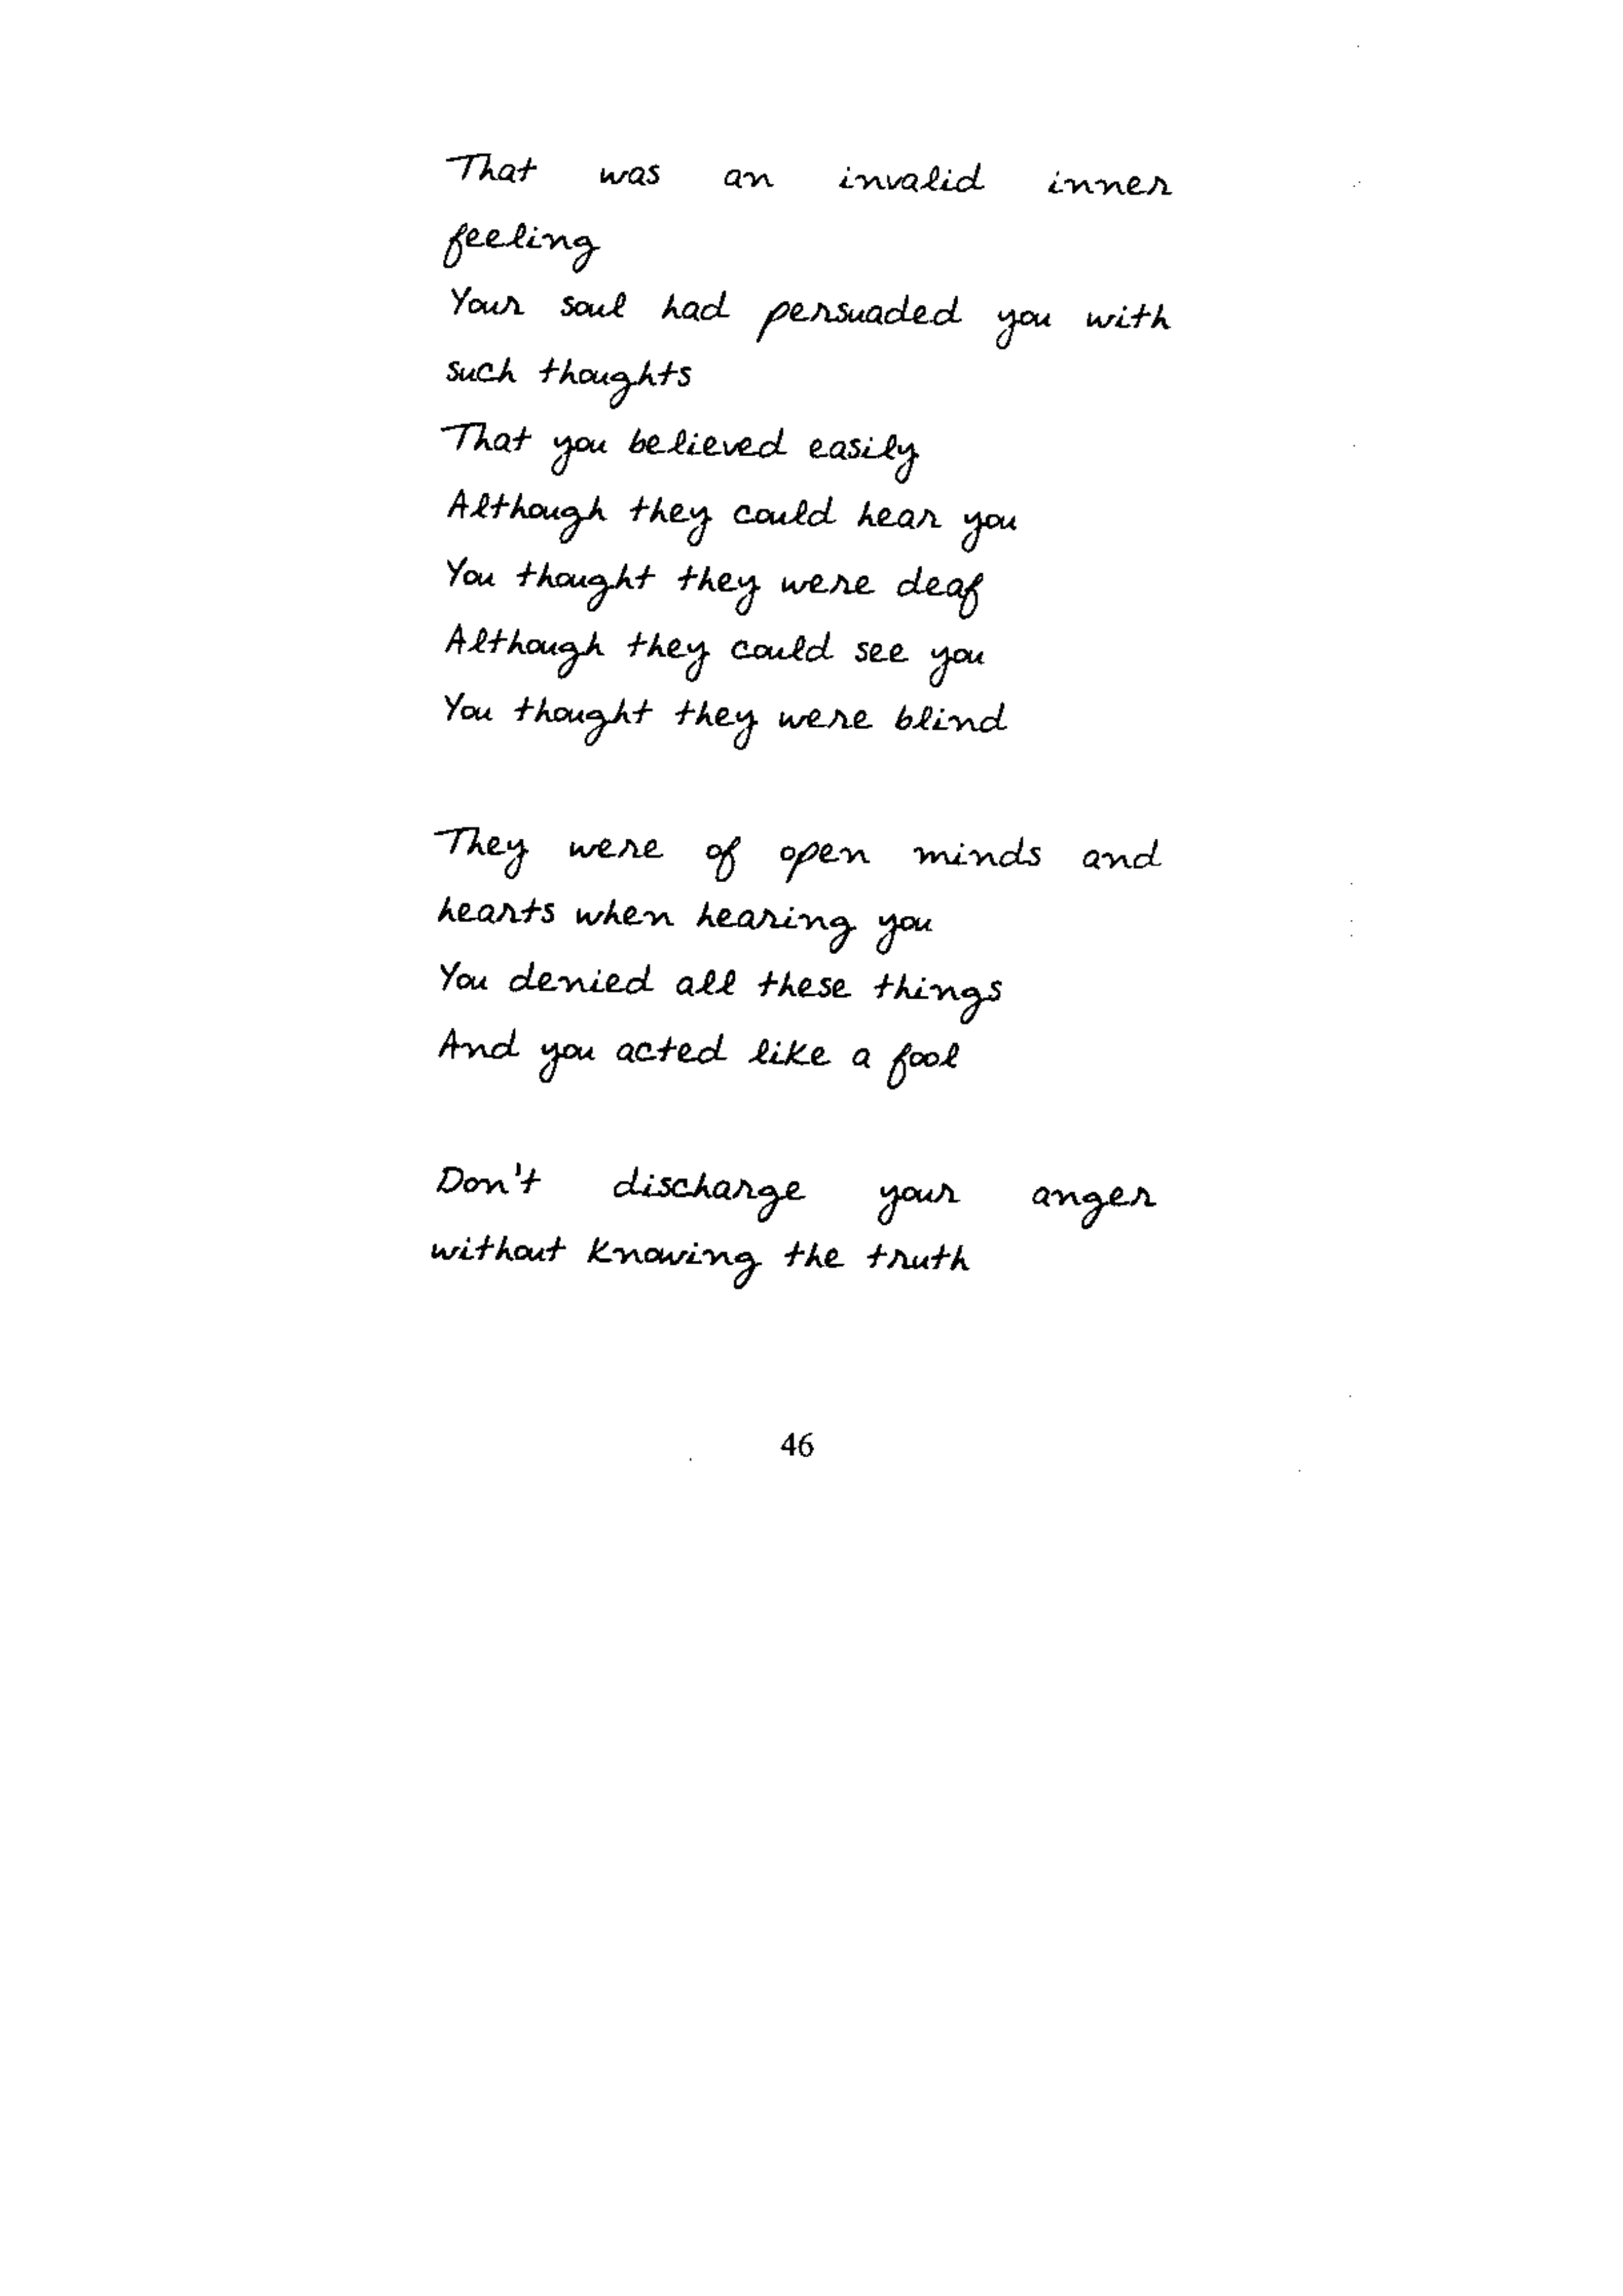 That was an invalid inner
feeling
Your soul had persuaded you with
such thoughts
That you believed easily
Although they could hear you
You thought they were deaf
Although they could see you
You thought they were blind
They were of open minds and
hearts when hearing you
You denied all these things
And you acted like a fool
Don't discharge your anger
without knowing the truth
46